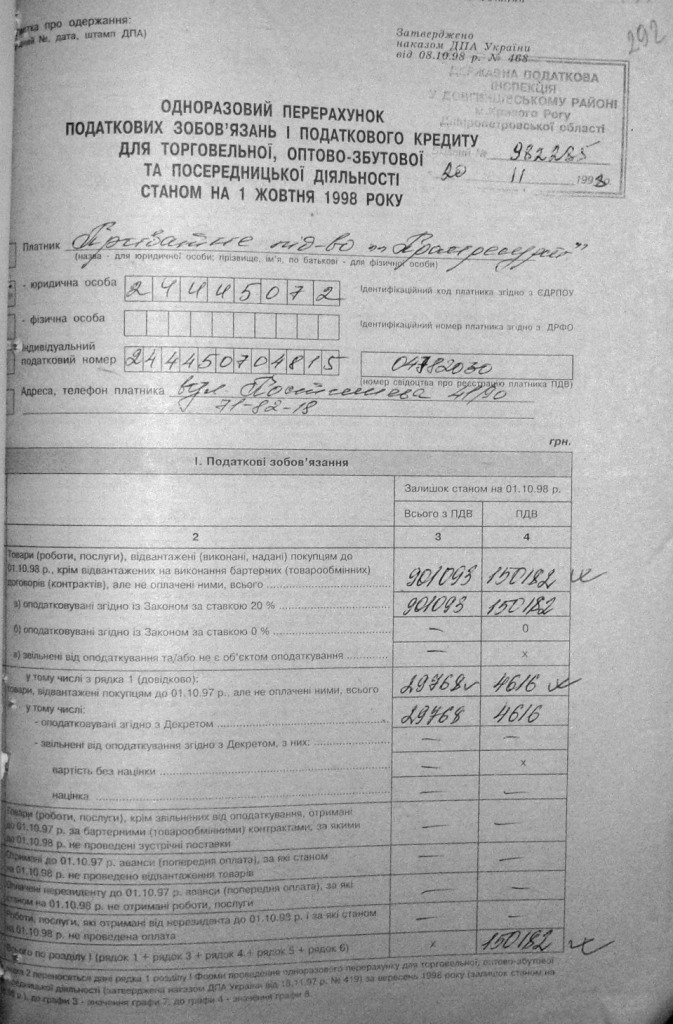 про одержання:
№, дата, штамп ДПА)
Затверджено
наказом ДПА України
від 08.10.98 р. № 468
292
ДЕРЖАВНА ПОДАТКОВА
ІНСПЕКЦІЯ
У ДОВГИНЦІВСЬКОМУ РАЙОНІ
м.Кривого Рогу
Дніпропетровської області
№ 982285
20 11 1998
ОДНОРАЗОВИЙ ПЕРЕРАХУНОК
ПОДАТКОВИХ ЗОБОВ'ЯЗАНЬ І ПОДАТКОВОГО КРЕДИТУ
ДЛЯ ТОРГОВЕЛЬНОЇ, ОПТОВО-ЗБУТОВОЇ
ТА ПОСЕРЕДНИЦЬКОЇ ДІЯЛЬНОСТІ
СТАНОМ НА 1 ЖОВТНЯ 1998 РОКУ
Платник Приватне під-во
(назва - для юридичної особи; прізвище, ім'я, по батькові - для фізичної особи)
- юридична особа 24445072 Ідентифікаційний код платника згідно з ЄДРПОУ
- фізична особа Ідентифікаційний номер платника згідно з ДРФО
Індивідуальний
податковий номер 244450704815 04782030
(номер свідоцтва про реєстрацію платника ПДВ)
Адреса, телефон платника вул. Постишева 41/90
71-82-18
грн.
І. Податкові зобов'язання
Залишок станом на 01.10.98 р.
Всього з ПДВ ПДВ
2 3 4
Товари (роботи, послуги), відвантажені (виконані, надані) покупцям до
01.10.98 р., крім відвантажених на виконання бартерних (товарообмінних)
договорів (контрактів), але не оплачені ними, всього 901093 150182
а) оподатковувані згідно із Законом за ставкою 20 % 901093 150182
б) оподатковувані згідно із Законом за ставкою 0 % — 0
в) звільнені від оподаткування та/або не є об'єктом оподаткування — х
у тому числі з рядка 1 (довідково):
Товари, відвантажені покупцям до 01.10.97 р., але не оплачені ними, всього 29768 4616
у тому числі:
- оподатковувані згідно з Декретом 29768 4616
- звільнені від оподаткування згідно з Декретом, з них: — —
вартість без націнки — х
націнка — —
Товари (роботи, послуги), крім звільнених від оподаткування, отримані
до 01.10.97 р. за бартерними (товарообмінними) контрактами, за якими
до 01.10.98 р. не проведені зустрічні поставки — —
Отримані до 01.10.97 р. аванси (попередня оплата), за які станом
на 01.10.98 р. не проведено відвантаження товарів — —
Сплачені нерезиденту до 01.10.97 р. аванси (попередня оплата), за які
станом на 01.10.98 р. не отримані роботи, послуги — —
Роботи, послуги, які отримані від нерезидента до 01.10.98 р. і за які станом
на 01.10.98 р. не проведена оплата — —
Всього по розділу І (рядок 1 + рядок 3 + рядок 4 + рядок 5 + рядок 6) х 150182
2 переносяться дані рядка 1 розділу І Форми проведення одноразового перерахунку для торговельної, оптово-збутової
діяльності (затверджена наказом ДПА України від 18.11.97 р. № 419) за вересень 1998 року (залишок станом на
р.), до графи 3 - значення графи 7, до графи 4 - значення графи 8.